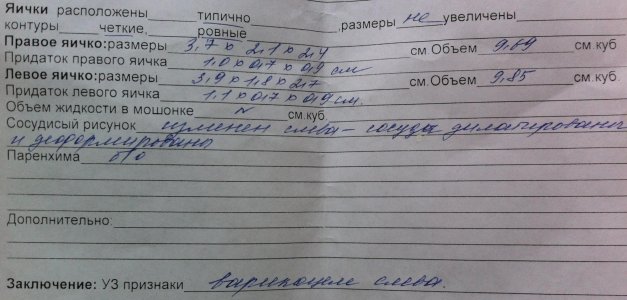 Яички расположены типично ,размеры не увеличены
контуры четкие, ровные
Правое яичко:размеры 3,7 х 2,1 х 2,4 см.Объем 9.69 см.куб
Придаток правого яичка 1,0 х 0,7 х 0,9 см
Левое яичко:размеры 3,9 х 1,8 х 2,7 см.Объем 9,85 см.куб.
Придаток левого яичка 1,1 х 0,7 х 0,9 см.
Объем жидкости в мошонке N см.куб.
Сосудисый рисунок изменен слева – сосуды дилатированы
и деформированы
Паренхима б/о
Дополнительно:
Заключение: УЗ признаки варикоцеле слева.